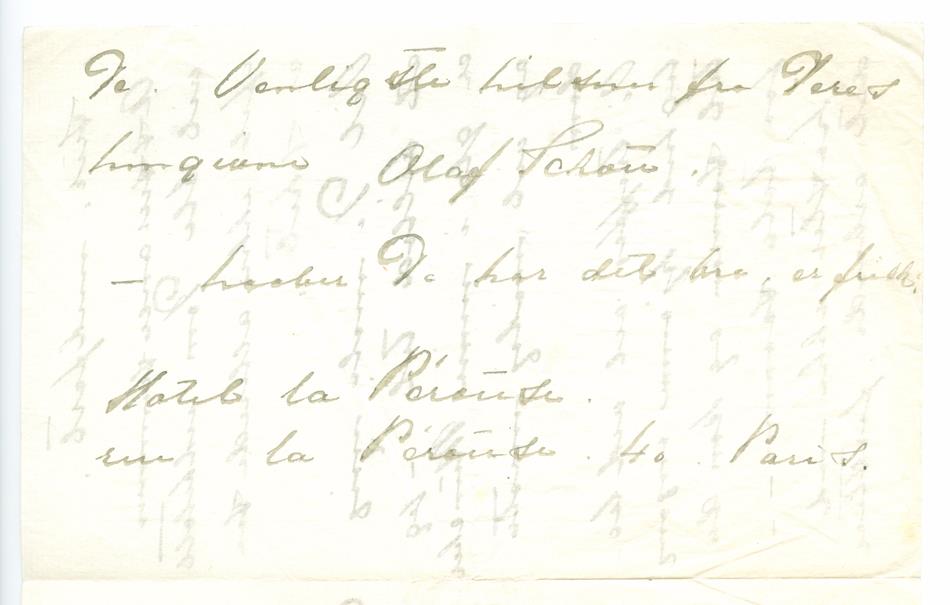 De. Venligste hilsener fra Deres
hengivne Olaf Schou.
— haaber De har det bra, er frisk.
Hotel la Pérouse.
rue la Pérouse. 40. Paris.